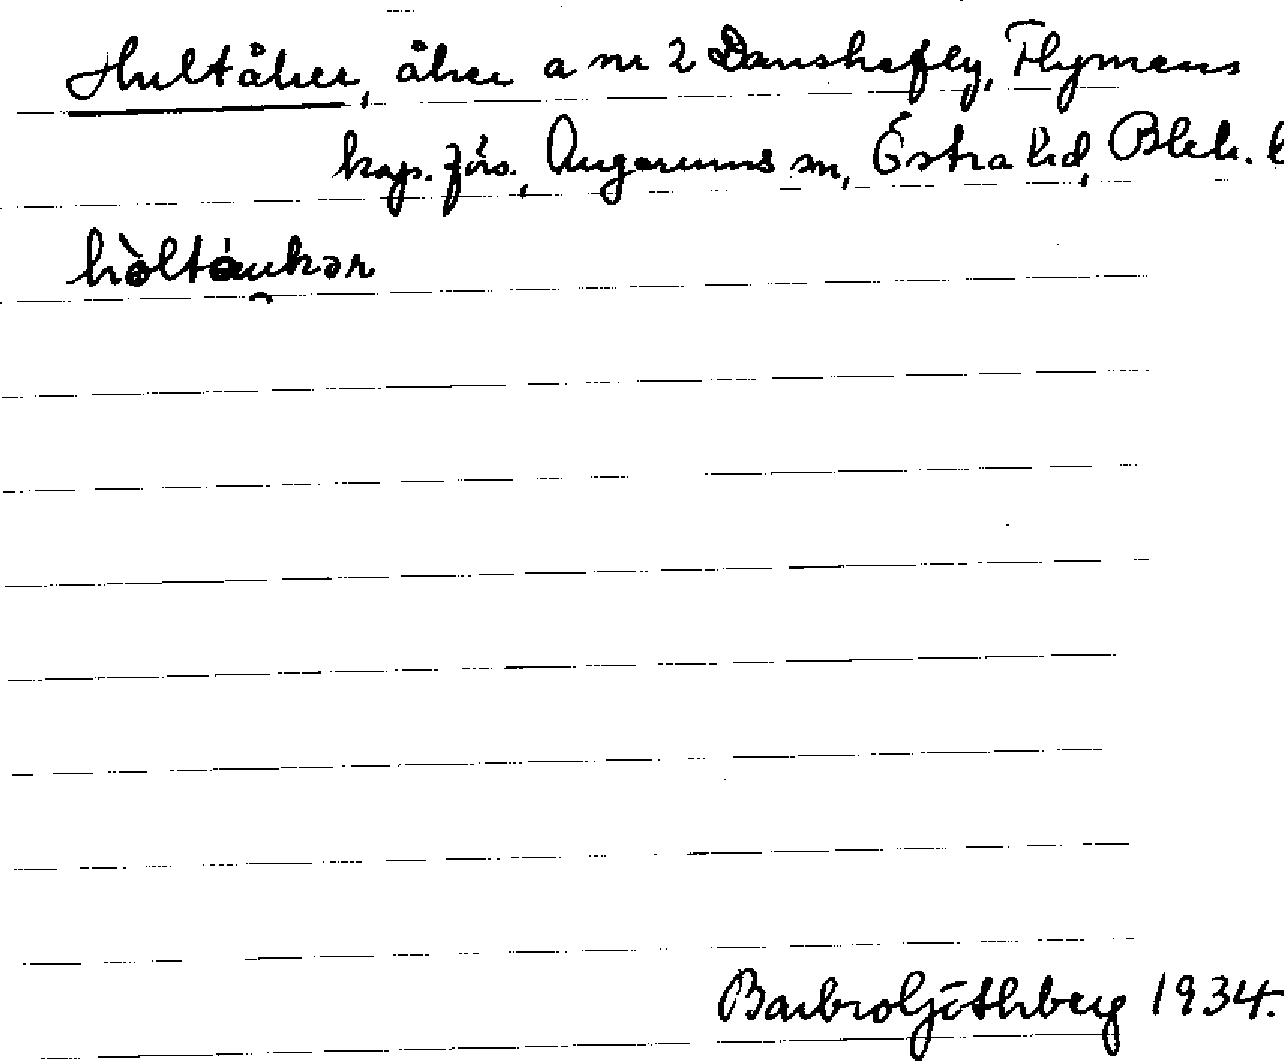 Hultåker, åker a nr 2 Danskefly, Flymens
kap. förs., Augerums sn, Östra hd, Blek. l
hòltáukər
Barbro Göthberg 1934.